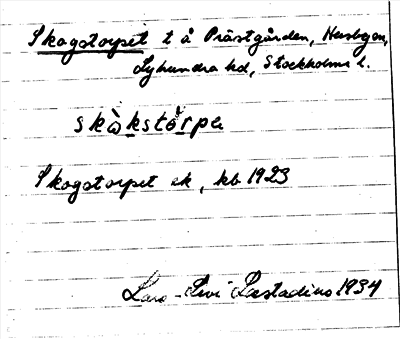 Skogstorpet t å Prästgården, Husbyön,
Lyhundra hd, Stockholms l.
skò̀kstårpa
Skogstorpet ek, kb 1923
Lars-Levi Læstadius 1934